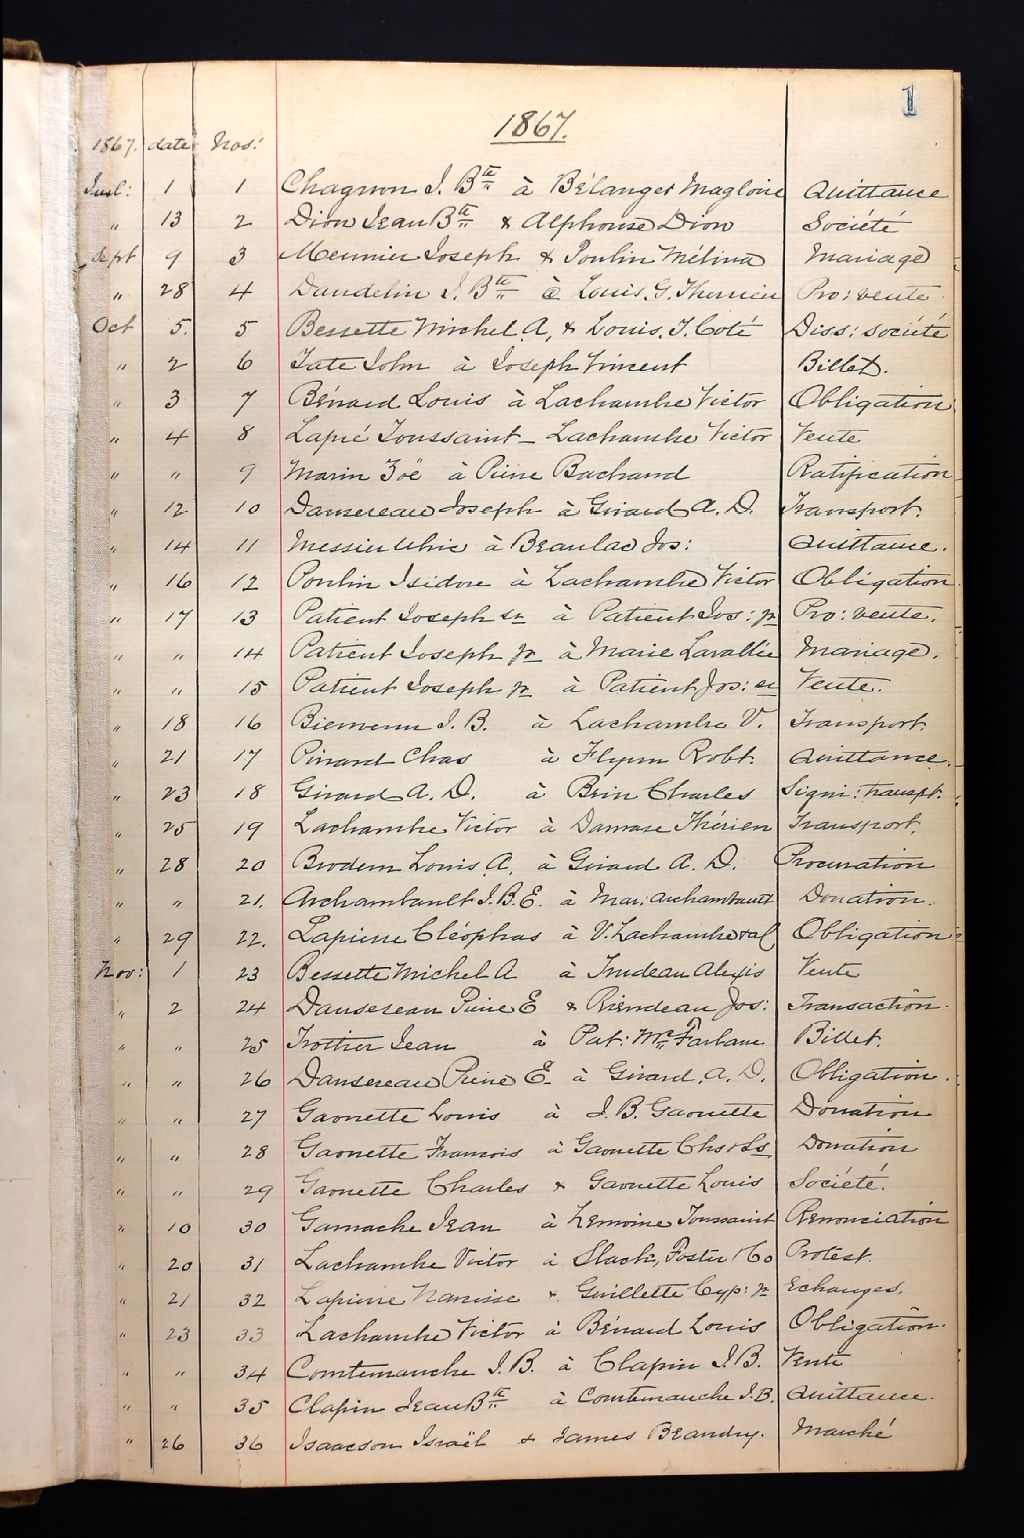 1
1867.
1867. date Nos:
Juil: 1 1 Chagnon J. Bte à Bélanger Magloire Quittance
" 13 2 Dion Jean Bte & Alphonse Dion Société
Sept 9 3 Meunier Joseph & Poulin Mélina Mariage
" 28 4 Daudelin J. Bte à Louis. G. Therrien Pro: vente
Oct 5. 5 Bessette Michel A, & Louis. J. Coté Diss: société
" 2 6 Tate John à Joseph Vincent Billet.
" 3 7 Bénard Louis à Lachambre Victor Obligation
" 4 8 Lapré Toussaint - Lachambre Victor Vente
" " 9 Marin Zoë à Pierre Bachand Ratification
" 12 10 Dansereau Joseph à Girard A. D. Transport.
" 14 11 Messier Ulric à Beaulac Jos: Quittance.
" 16 12 Poulin Isidore à Lachambre Victor Obligation.
" 17 13 Patient Joseph sr à Patient Jos: jr Pro: vente.
" " 14 Patient Joseph jr à Marie Lavallée Mariage.
" " 15 Patient Joseph jr à Patient Jos: sr Vente.
" 18 16 J. B. à Lachambre V. Transport.
" 21 17 Pinard Chas à Flynn Robt. Quittance.
" 23 18 Girard A. D. à Brin Charles Signi: transpt.
" 25 19 Lachambre Victor à Damase Thérien Transport.
" 28 20 Brodeur Louis A. à Girard A. D. Procuration
" " 21. Archambault J. B. E. à Mar: Archambault Donation.
" 29 22. Lapierre Cléophas à V. Lachambre & al Obligation
Nov: 1 23 Bessette Michel A à Trudeau Alexis Vente
" 2 24 Dansereau Pierre E & Riendeau Jos: Transaction
" " 25 Trottier Jean à Pat: McFarlane Billet.
" " 26 Dansereau Pierre E. à Girard. A. D. Obligation.
" " 27 Gaouette Louis à J. B. Gaouette Donation
" " 28 Gaouette Francois à Gaouette Chs & Ls Donation
" " 29 Gaouette Charles & Gaouette Louis Société.
" 10 30 Gamache Jean à Lemoine Toussaint Renonciation
" 20 31 Lachambre Victor à Slack, Foster & Co Protest.
" 21 32 Lapierre Narcisse & Guillette Cyp: jr Echanges.
" 23 33 Lachambre Victor à Bénard Louis Obligation.
" " 34 Comtemanche J. B. à Clapin J. B. Vente
" " 35 Clapin Jean Bte à Comtemanche J. B. Quittance.
" 26 36 Isaacson Israël & James Beaudry. Marché